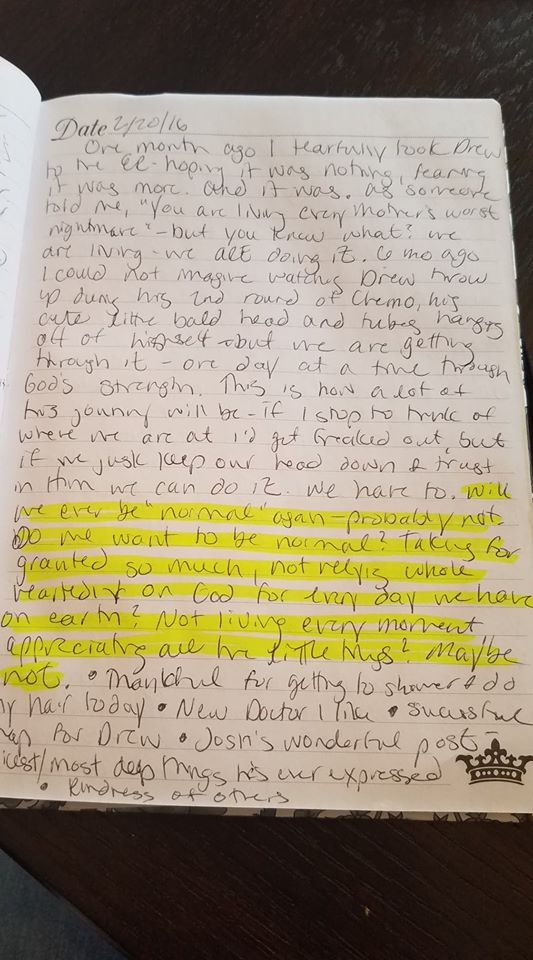 Date 2/20/16
One month ago I tearfully took Drew
to the ER - hoping it was nothing, fearing
it was more. And it was. As someone
told me, "You are living every mother's worst
nightmare" - but you know what? We
are living - we are doing it. 6 mo ago
I could not imagine watching Drew throw
up during his 2nd round of Chemo, his
cute little bald head and tubes hanging
off of himself - but we are getting
through it - one day at a time through
God's strength. This is how a lot of
this journey will be - if I stop to think of
where we are at I'd get freaked out, but
if we just keep our head down & trust
in Him we can do it. We have to. Will
we ever be "normal" again - probably not.
Do we want to be normal? Taking for
granted so much, not relying whole
heartedly on God for every day we have
on earth? Not living every moment
appreciating all the little things? Maybe
not. • Thankful for getting to shower & do
my hair today • New Doctor I like • sucessful
nap for Drew • Josh's wonderful post -
nicest/most deep things he's ever expressed
• Kindness of others